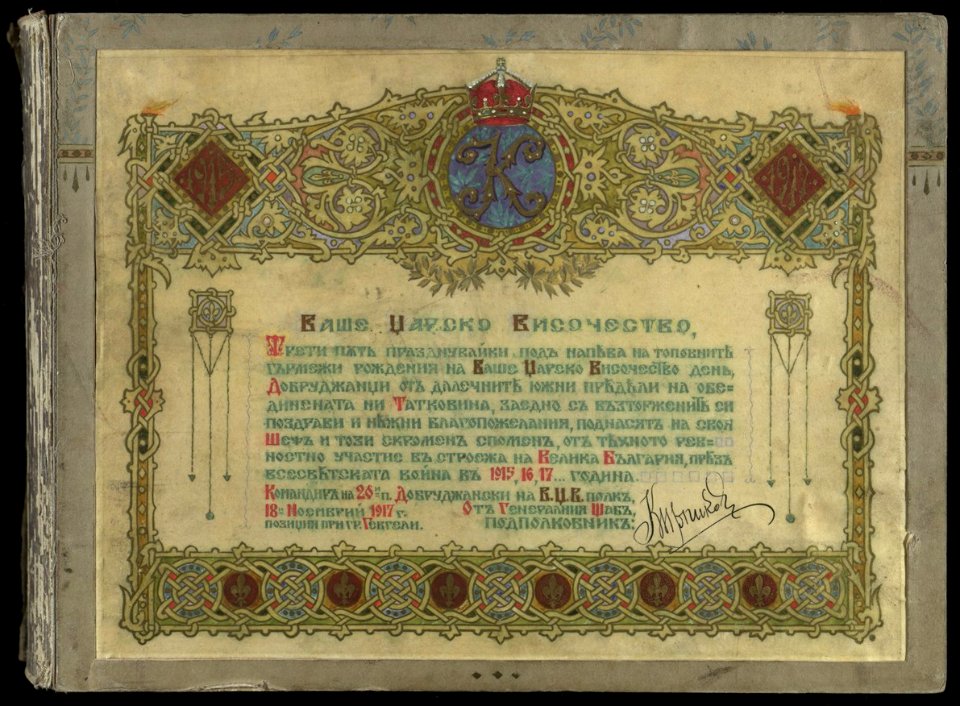 1915
К
1917
Ваше Царско Височество,
Трети пѫть празднувайки подъ напѣва на топовнитѣ
гърмежи рождения на Ваше Царско Височество день,
Добруджанци отъ далечнитѣ южни прѣдѣли на обе=
динената ни Татковина, заедно съ възторженитѣ си
поздрави и нѣжни благопожелания, поднасятъ на своя
Шефъ и този скроменъ споменъ, отъ тѣхното рев=
ностно участие въ строежа на Велика България, прѣзъ
всесвѣтската война въ 1915, 16, 17... година.
Командиръ на 26и п. Добруджански на В.Ц.В. полкъ,
18и Ноемврий 1917 г.
Отъ Генералния Щабъ,
позиция при гр. Гевгели.
Подполковникъ: